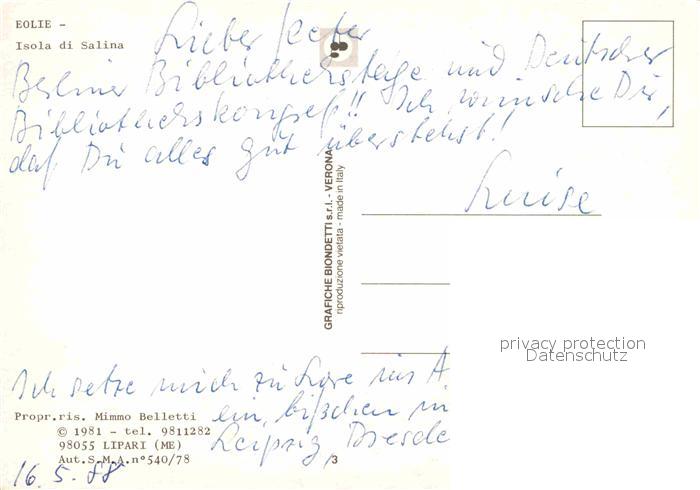 EOLIE -
Isola di Salina
Lieber Peter
Berliner Bibliothekstage und Deutscher
Bibliothekskongreß!! Ich wünsche Dir,
daß Du alles gut überstehst!
Luise
GRAFICHE BIONDETTI s.r.l. - VERONA
riproduzione vietata - made in Italy
privacy protection
Datenschutz
Ich setze mich zu Lore ins A
ein bißchen in
Leipzig, Dresde
Propr.ris. Mimmo Belletti
© 1981 - tel. 9811282
98055 LIPARI (ME)
Aut.S.M.A.n°540/78
3
16.5.88